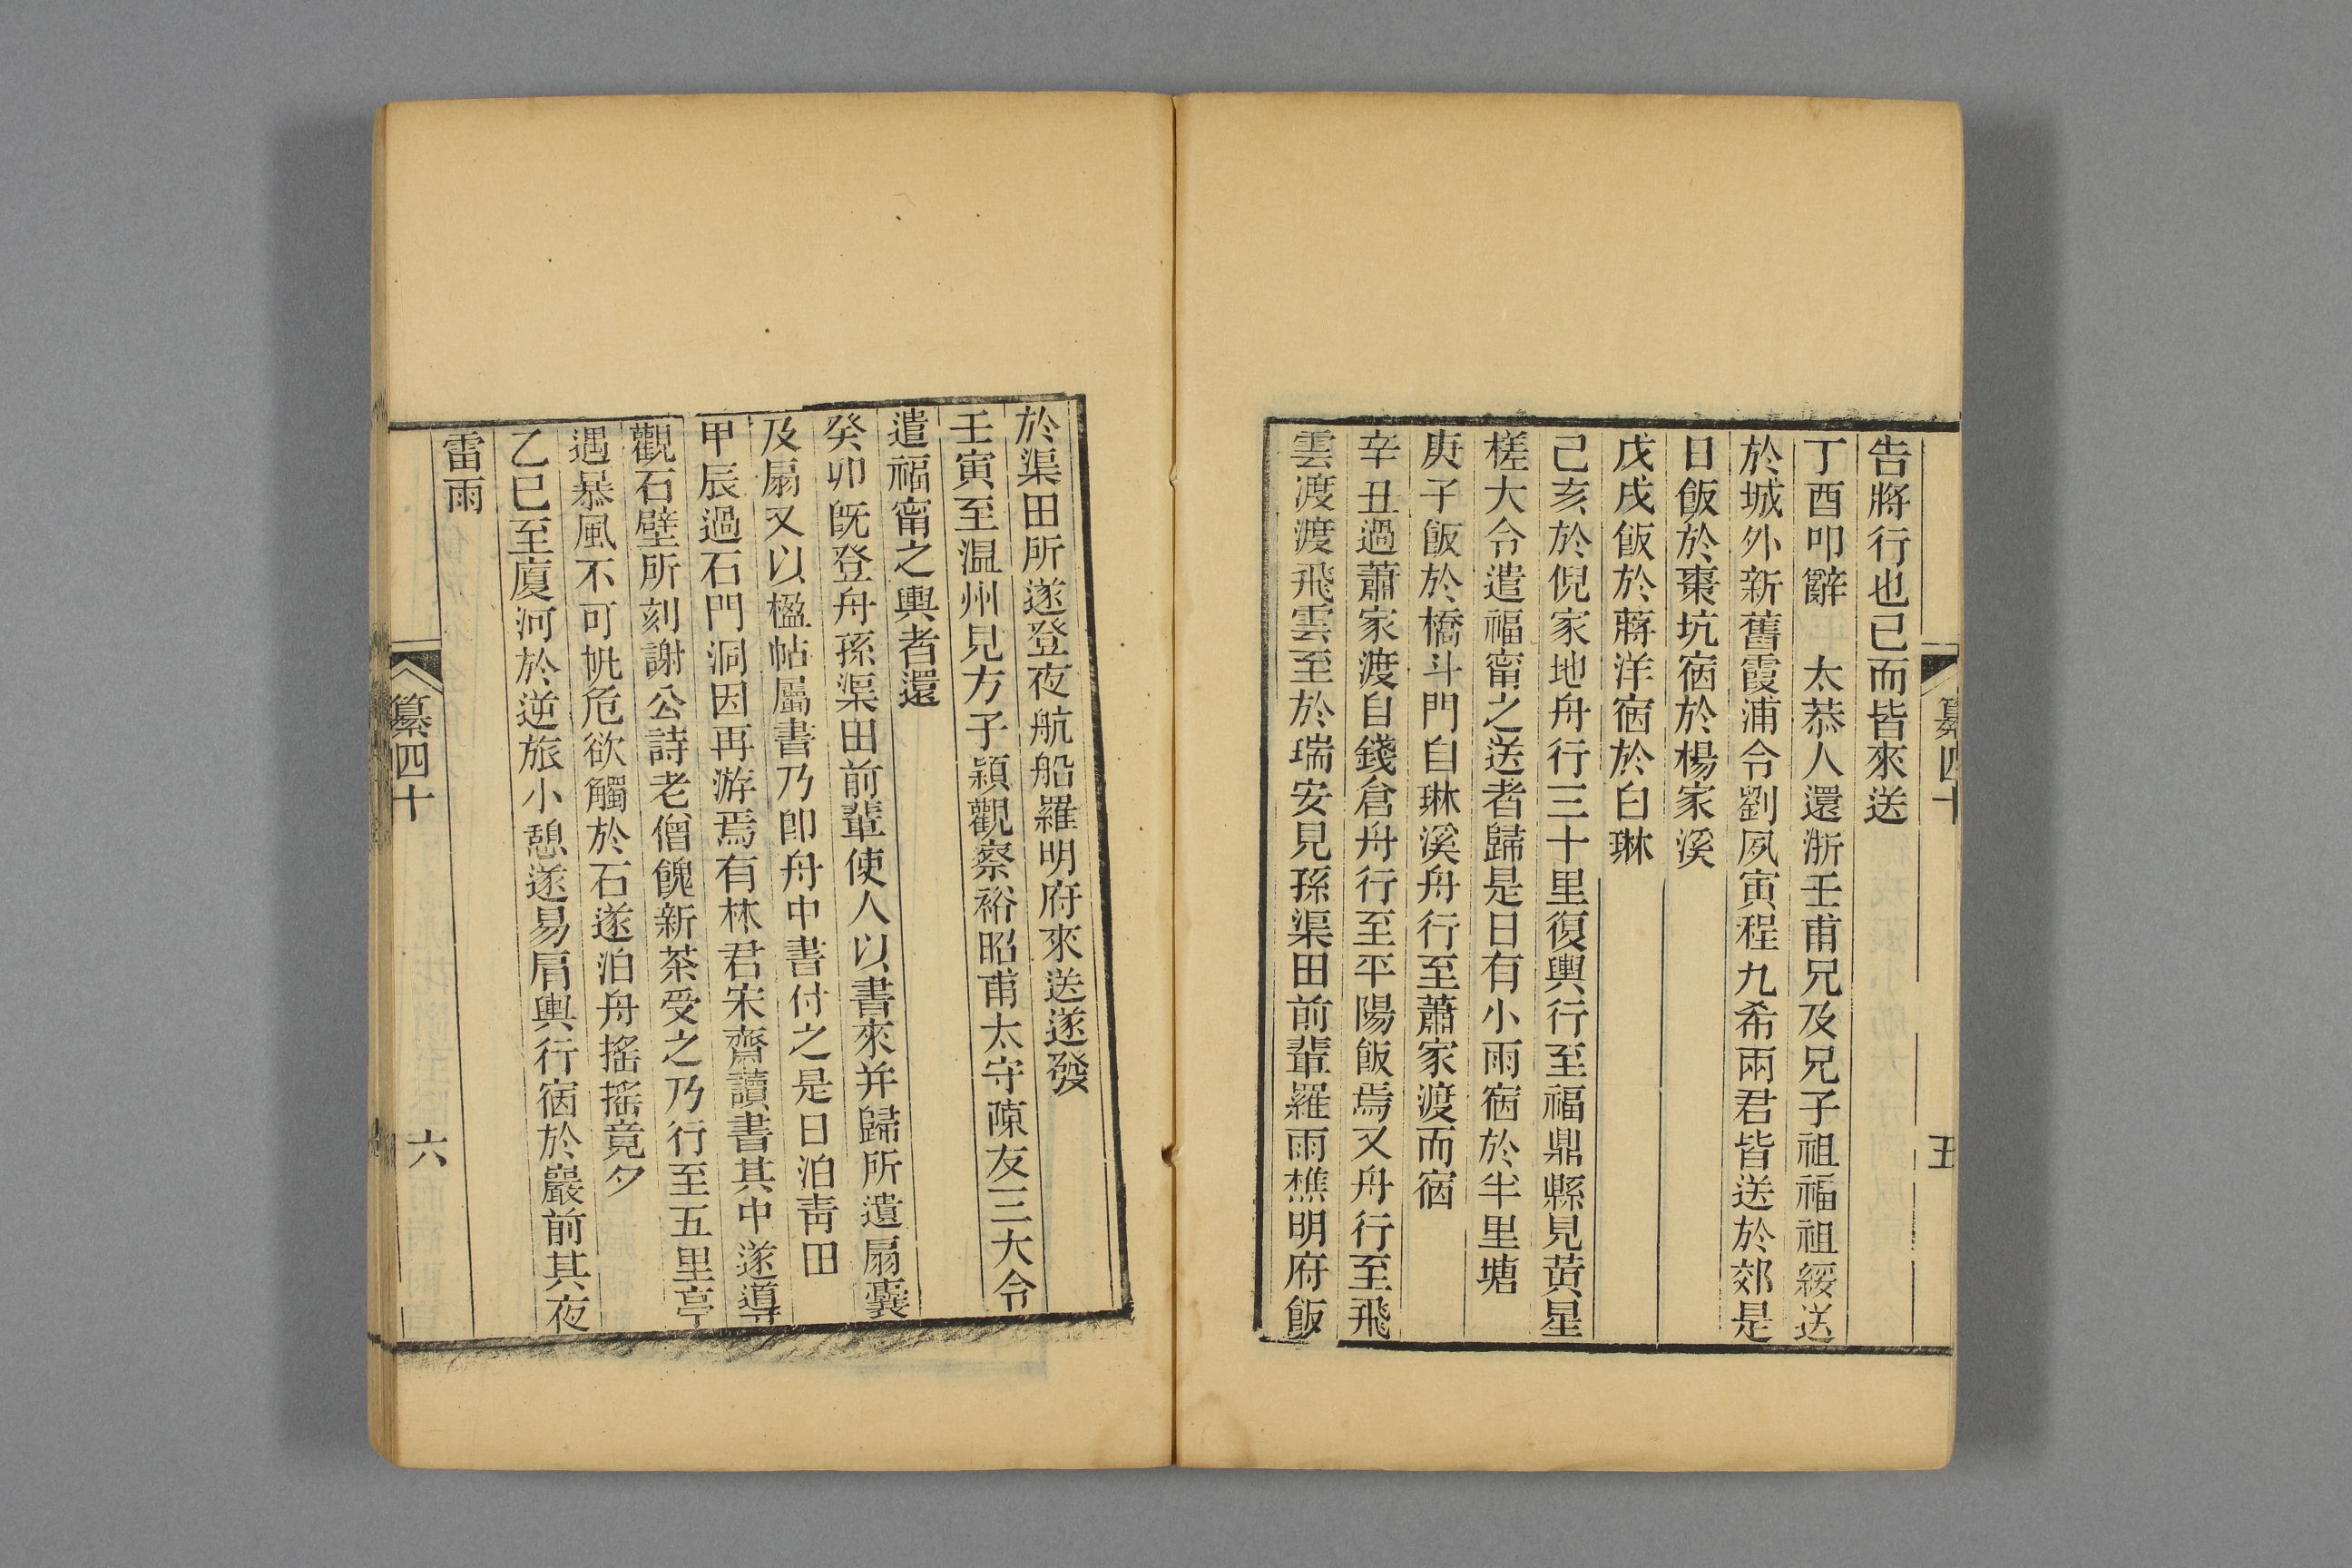 纂四十
五
告將行也已而皆來送
丁酉叩辭　太恭人還浙壬甫兄及兄子祖福祖綏送
於城外新舊霞浦令劉夙寅程九希兩君皆送於郊是
日飯於棗坑宿於楊家溪
戊戌飯於蔣洋宿於白琳
己亥於倪家地舟行三十里復輿行至福鼎縣見黃星
槎大令遣福甯之送者歸是日有小雨宿於半里塘
庚子飯於橋斗門自琳溪舟行至蕭家渡而宿
辛丑過蕭家渡自錢倉舟行至平陽飯焉又舟行至飛
雲渡渡飛雲至於瑞安見孫渠田前輩羅雨樵明府飯
於渠田所遂登夜航船羅明府來送遂發
壬寅至温州見方子穎觀察裕昭甫太守陳友三大令
遣福甯之輿者還
癸卯既登舟孫渠田前輩使人以書來并歸所遺扇囊
及扇又以楹帖屬書乃卽舟中書付之是日泊靑田
甲辰過石門洞因再游焉有林君宋齋讀書其中遂導
觀石壁所刻謝公詩老僧餽新茶受之乃行至五里亭
遇暴風不可㠶危欲觸於石遂泊舟搖搖竟夕
乙巳至廈河於逆旅小憩遂易肩輿行宿於巖前其夜
雷雨
纂四十
六